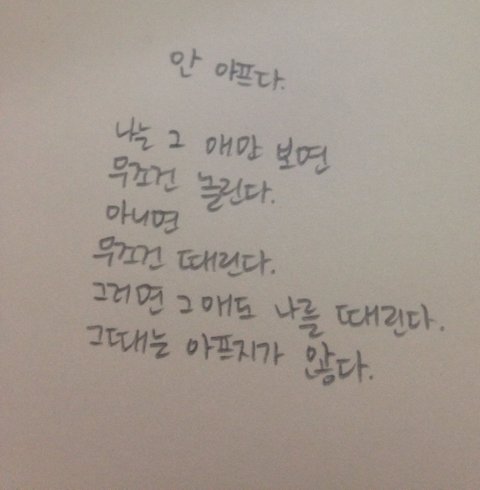 안 아프다.
나는 그 애만 보면
무조건 놀린다.
아니면
무조건 때린다.
그러면 그애도 나를 때린다.
그때는 아프지가 않다.